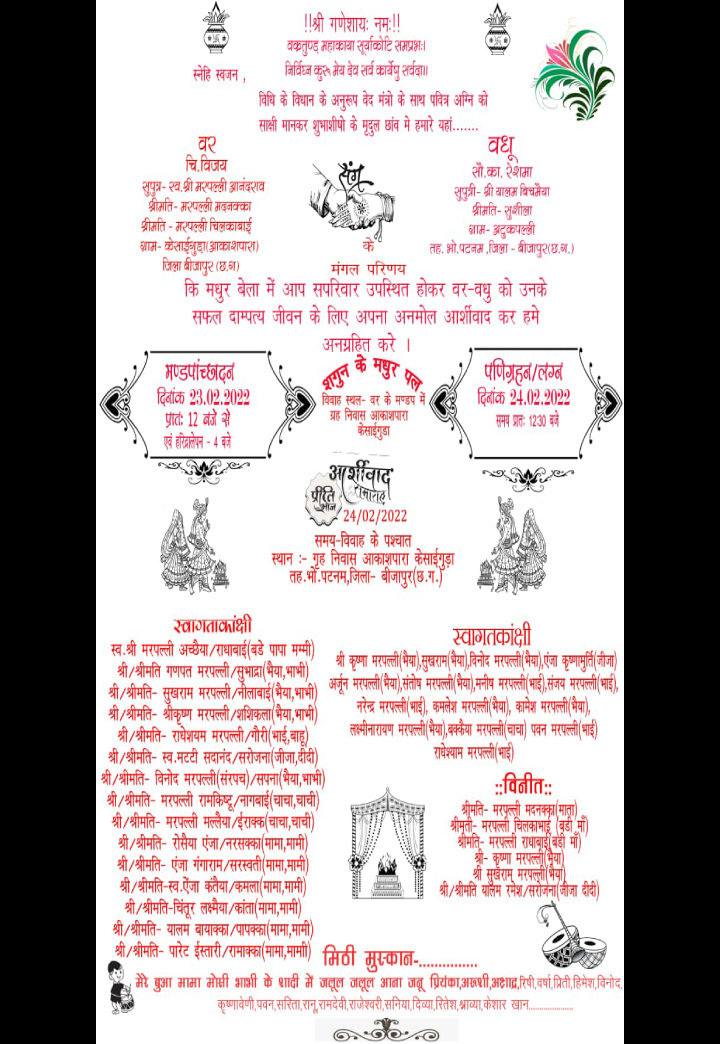 !!श्री गणेशाय: नम:!!
वक्रतुण्ड महाकाया सूर्याकोटि समप्रभ:।
निर्विघ्न कुरू मेय देव सर्व कार्येषु सर्वदा॥
स्नेहि स्वजन ,
विधि के विधान के अनुरूप वेद मंत्रो के साथ पवित्र अग्नि को
साक्षी मानकर शुभाशीषो के मृदुल छांव मे हमारे यहां.......
वर
चि.विजय
सुपुत्र- स्व.श्री मरपल्ली आनंदराव
श्रीमति- मरपल्ली मदनक्का
श्रीमति - मरपल्ली चिलकाबाई
ग्राम- केसाईगुडा(आकाशपारा)
जिला बीजापुर (छ.ग)
संग
के
मंगल परिणय
वधू
सौ.का. रेशमा
सुपुत्री- श्री यालम बिचमैया
श्रीमति- सुशीला
ग्राम- अटुकपल्ली
तह. भो.पटनम ,जिला - बीजापुर(छ.ग.)
कि मधुर बेला में आप सपरिवार उपस्थित होकर वर-वधु को उनके
सफल दाम्पत्य जीवन के लिए अपना अनमोल आर्शीवाद कर हमे
अनग्रहित करे ।
मण्डपांच्छादन
दिनांक 23.02.2022
प्रात: 12 बजे से
एवं हरिद्रालेपन - 4 बजे
शगुन के मधुर पल
विवाह स्थल- वर के मण्डप में
ग्रह निवास आकाशपारा
केसाईगुडा
पणिग्रहन/लग्न
दिनांक 24.02.2022
समय प्रात: 1230 बजे
आर्शीवाद
समारोह
प्रीति
भोज
24/02/2022
समय-विवाह के पश्चात
स्थान :- गृह निवास आकाशपारा केसाईगुड़ा
तह.भो.पटनम,जिला- बीजापुर(छ.ग.)
स्वागताकांक्षी
स्व.श्री मरपल्ली अच्छैया/राधाबाई(बडे पापा मम्मी)
श्री/श्रीमति गणपत मरपल्ली/सुभाद्रा(भैया,भाभी)
श्री/श्रीमति- सुखराम मरपल्ली/नीलाबाई(भैया,भाभी)
श्री/श्रीमति- श्रीकृष्ण मरपल्ली/शशिकला(भैया,भाभी)
श्री/श्रीमति- राधेशयम मरपल्ली/गौरी(भाई,बाहू)
श्री/श्रीमति- स्व.मटटी सदानंद/सरोजना(जीजा,दीदी)
श्री/श्रीमति- विनोद मरपल्ली(संरपच)/सपना(भैया,भाभी)
श्री/श्रीमति- मरपल्ली रामकिष्टू/नागबाई(चाचा,चाची)
श्री/श्रीमति- मरपल्ली मल्लैया/ईराक्क(चाचा,चाची)
श्री/श्रीमति- रोसैया एंजा/नरसक्का(मामा,मामी)
श्री/श्रीमति- एंजा गंगाराम/सरस्वती(मामा,मामी)
श्री/श्रीमति-स्व.ऐंजा कंतैया/कमला(मामा,मामी)
श्री/श्रीमति-चिंतूर लक्ष्मैया/कांता(मामा,मामी)
श्री/श्रीमति- यालम बायाक्का/पापक्का(मामा,मामी)
श्री/श्रीमति- पारेट ईस्तारी/रामाक्का(मामा,मामाी)
स्वागतकांक्षी
श्री कृष्णा मरपल्ली(भैया),सुखराम(भैया),विनोद मरपल्ली(भैया),एंजा कृष्णामुर्ति(जीजा)
अर्जून मरपल्ली(भैया),संतोष मरपल्ली(भैया),मनीष मरपल्ली(भाई),संजय मरपल्ली(भाई),
नरेन्द्र मरपल्ली(भाई), कमलेश मरपल्ली(भैया), कामेश मरपल्ली(भैया),
लक्ष्मीनारायण मरपल्ली(भैया),बक्कैया मरपल्ली(चाचा) पवन मरपल्ली(भाई)
राधेश्याम मरपल्ली(भाई)
::विनीत::
श्रीमति- मरपल्ली मदनक्का(माता)
श्रीमती- मरपल्ली चिलकाभाई (बडी माँ)
श्रीमति- मरपल्ली राधाबाई(बडी माँ)
श्री- कृष्णा मरपल्ली(भैया)
श्री सुखराम मरपल्ली(भैया)
श्री/श्रीमति यालम रमेश/सरोजना(जीजा दीदी)
मिठी मुस्कान-...............
मेरे बुआ मामा मोसी भाभी के शादी में जलूल जलूल आना जनू प्रियंका,अरुशी,अशाद्र,रिषी,वर्षा,प्रिती,हिमेश,विनोद,
कृष्णावेणी,पवन,सरिता,रानू,रामदेवी,राजेश्वरी,सनिया,दिव्या,रितेश,श्राव्या,केशार खान....................